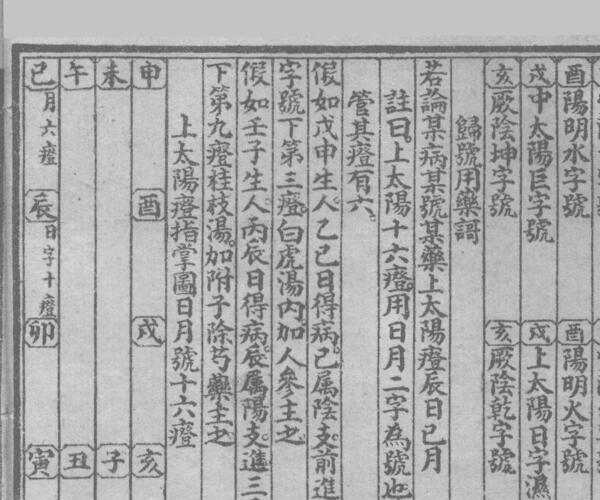 酉 陽明水字號 酉 陽明火字號
戌 中太陽巨字號 戌 上太陽日字濕
亥 厥陰坤字號 亥 厥陰乾字號
歸號用藥謌
若論某病某號某藥上太陽證辰日巳月
註曰上太陽十六證用日月二字為號也
管其證有六
假如戊申生人乙巳日得病巳屬陰支前進
字號下第三證白虎湯內加人參主之
假如壬子生人丙辰日得病辰屬陽支進三
下第九證桂枝湯加附子除芍藥主之
上太陽證指掌圖日月號十六證
申 酉 戌 亥
未 子
午 丑
巳 月六證 辰 日字十證 卯 寅